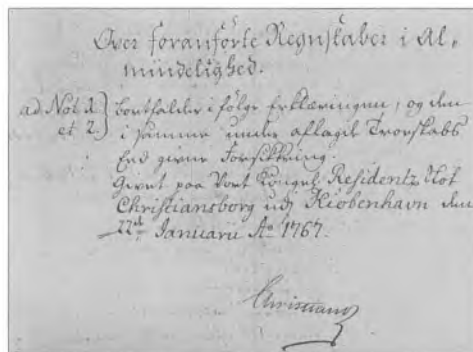 Over foranförte Regnskaber i Al-
mindelighed.
ad Not 1. bortfalder i fölge Erklæringen, og den
et 2. i samme under aflagde Troeskabs
Eed givne Forsikkring.
Givet paa Vort Kongel. Residentz Slot
Christiansborg udj Kiöbenhavn den
22d Januarii Ao 1767.
Christian